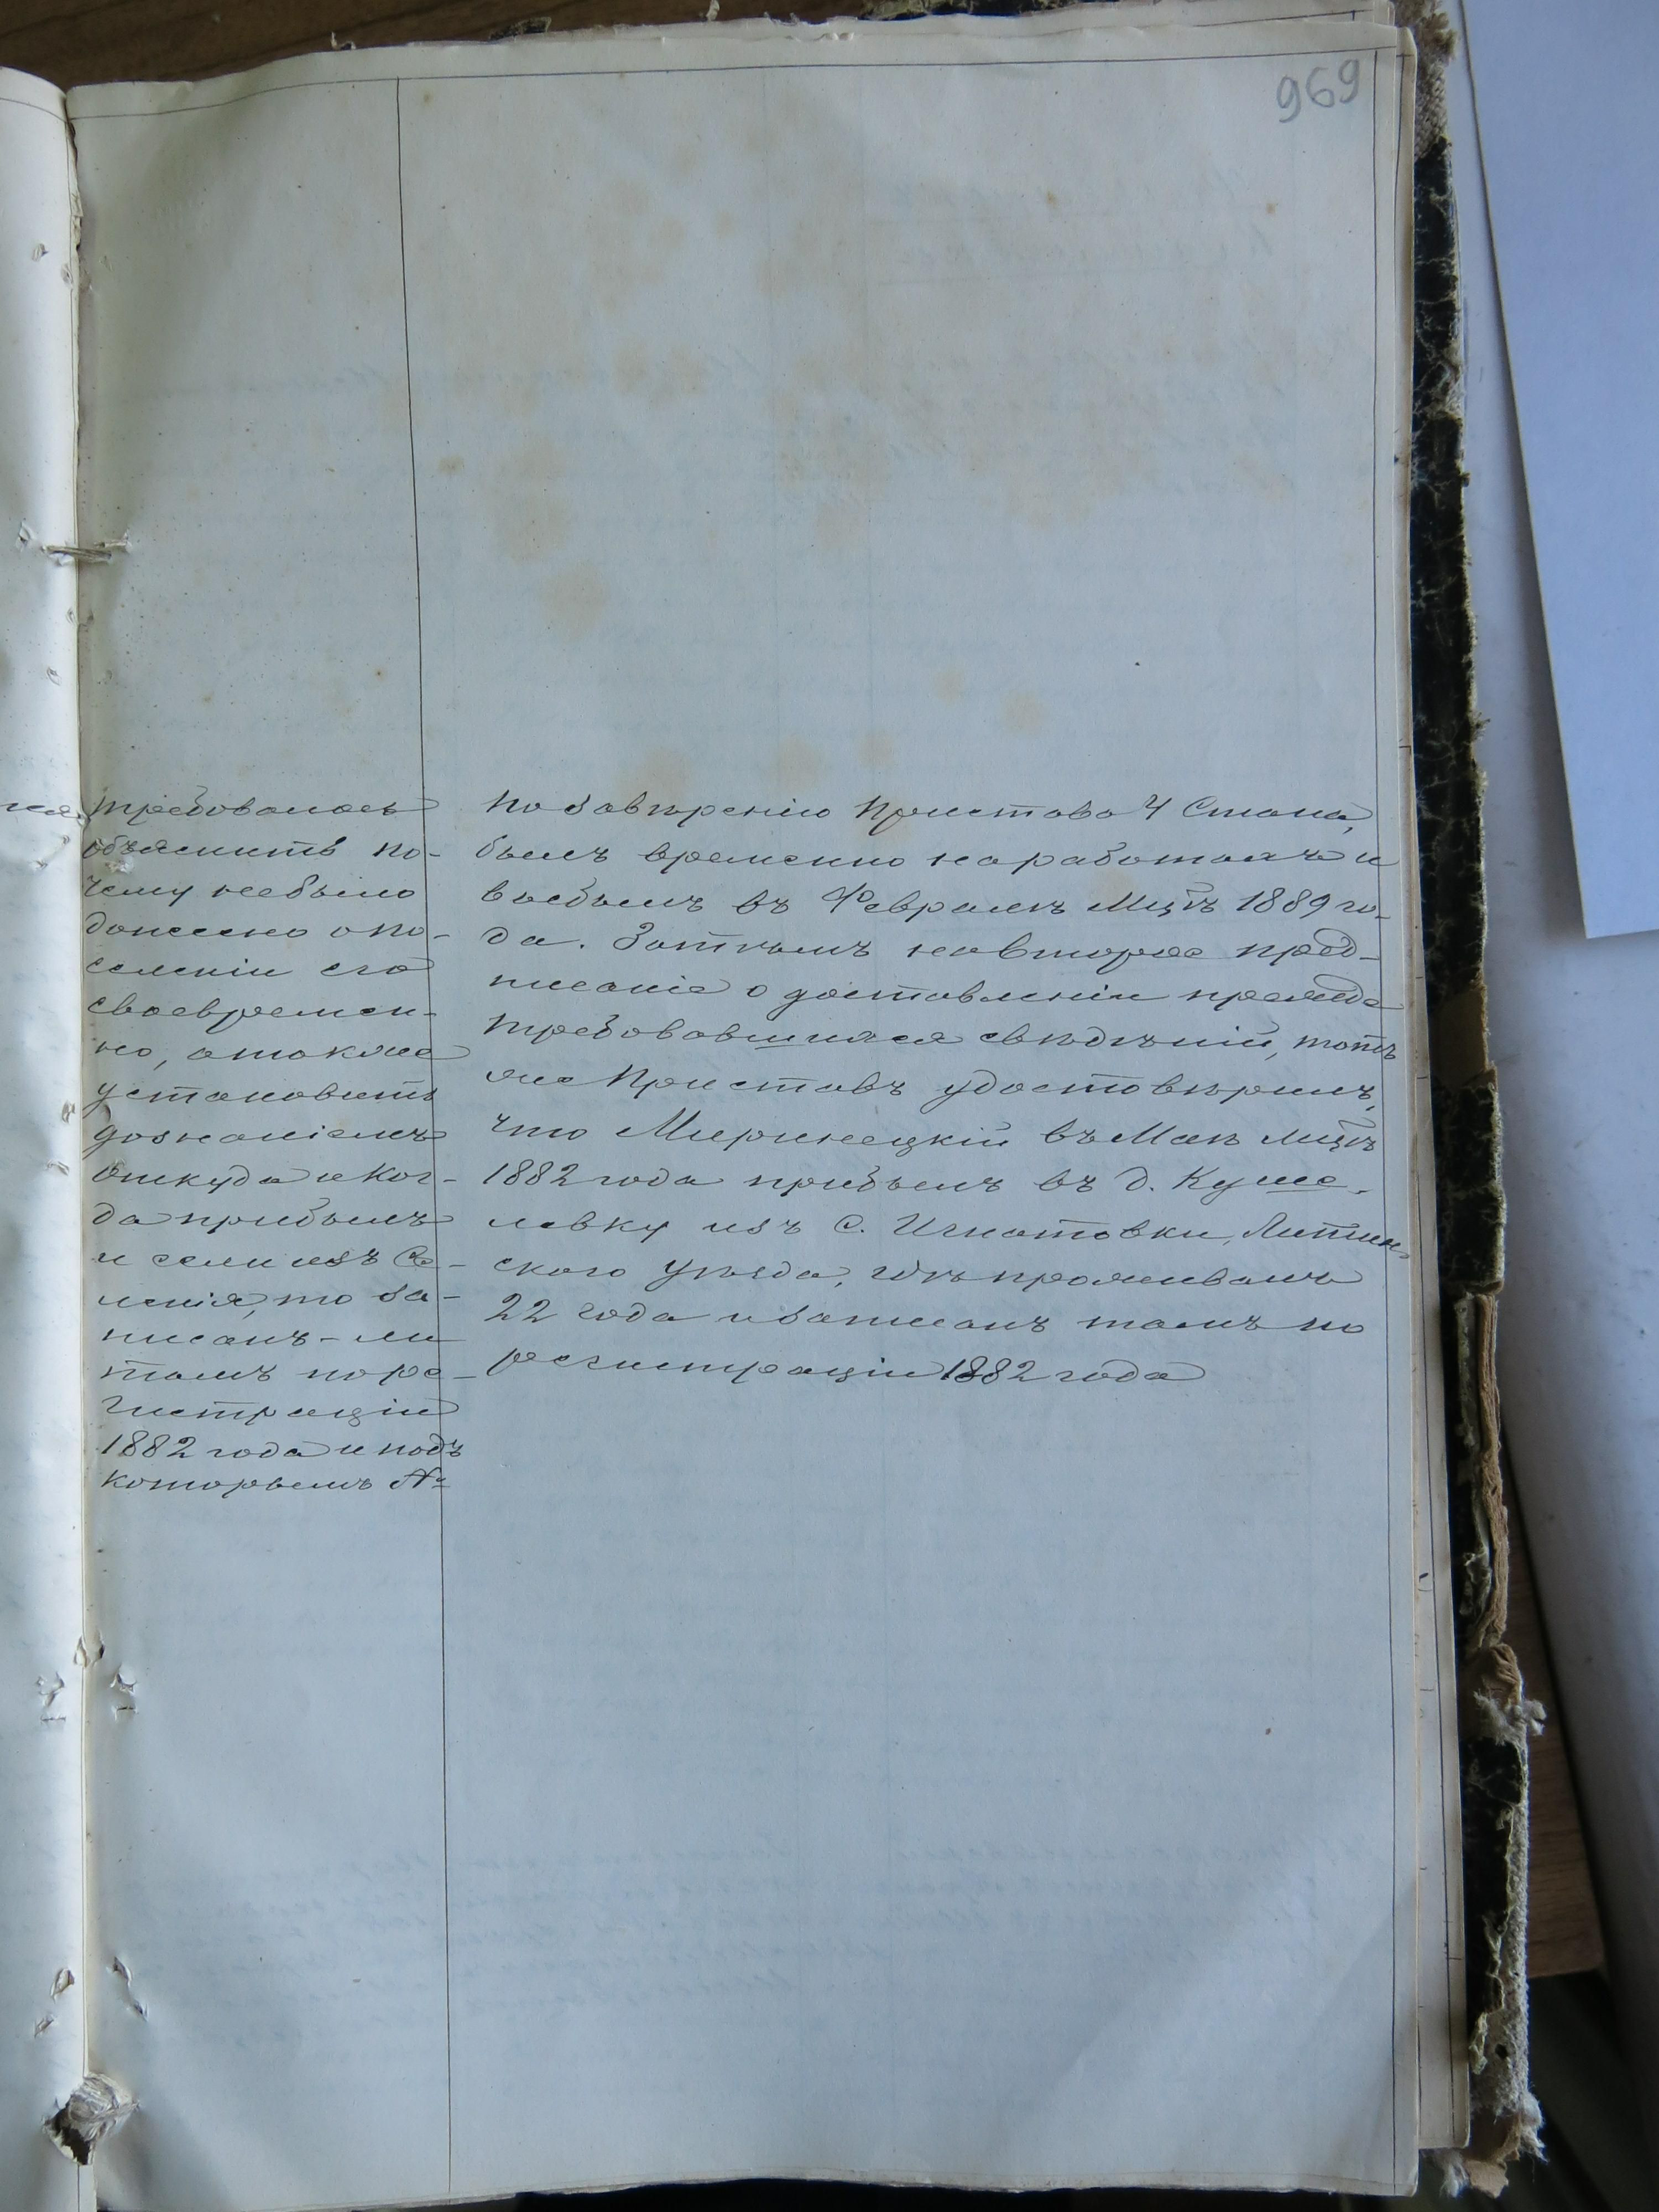 969
требовалось
объяснить по-
чему небыло
донесено опо-
селеніи его
своевремен-
но, атакже
установить
дознаніемъ
откуда и ког-
да прибылъ
и если изъ се-
ленія, то за-
писанъ-ли
тамъ поре-
гистраціи
1882 года и подъ
которымъ №
по завѣренію Пристава 4 Стана,
былъ временно наработахъ и
выбылъ въ Февралѣ Мцѣ 1889 го-
да. Затѣмъ навторое пред-
писаніе о доставленіи прежде
требовавшихся свѣдѣній, тотъ
же Приставъ удостовѣрилъ,
что Мирнецкій въ Маѣ Мцѣ
1882 года прибылъ въ д. Куше-
левку изъ С. Игнатовки, Летин-
скаго Уѣзда, гдѣ проживалъ
22 года изаписанъ тамъ по
регистраціи 1882 года